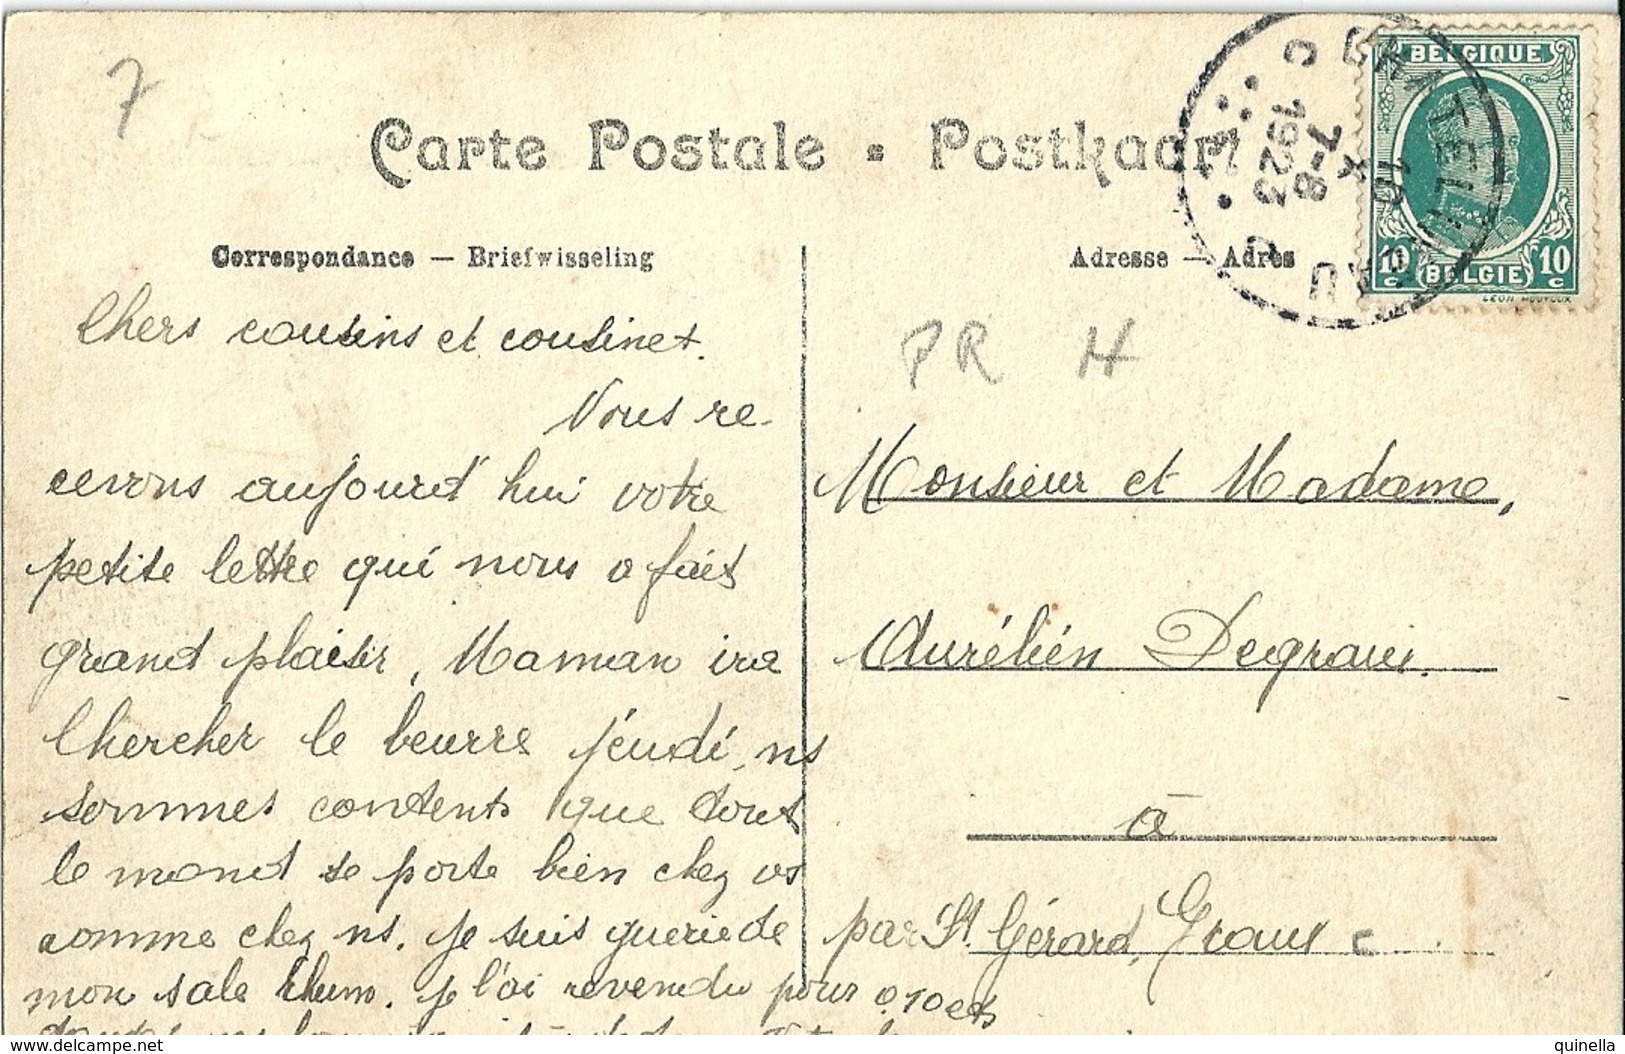 7
Carte Postale - Postkaart
BELGIQUE
CHATELINEAU
C C
7-8
X 16
1923
10 c BELGIE 10 c
LEON HOUYOUX
Correspondance — Briefwisseling
Adresse — Adres
PR H
Chers cousins et cousinet.
Nous re-
cevons aujourd'hui votre
petite lettre qui nous a fait
grand plaisir, Maman ira
chercher le beurre jeudi, ns
sommes contents que tout
le mond se porte bien chez vs
comme chez ns. Je suis guerie de
mon sale rhum. Je l'ai revendu pour 0.10 cts
Monsieur et Madame,
Aurélien
à
par St. Gérard,
delcampe.net
quinella